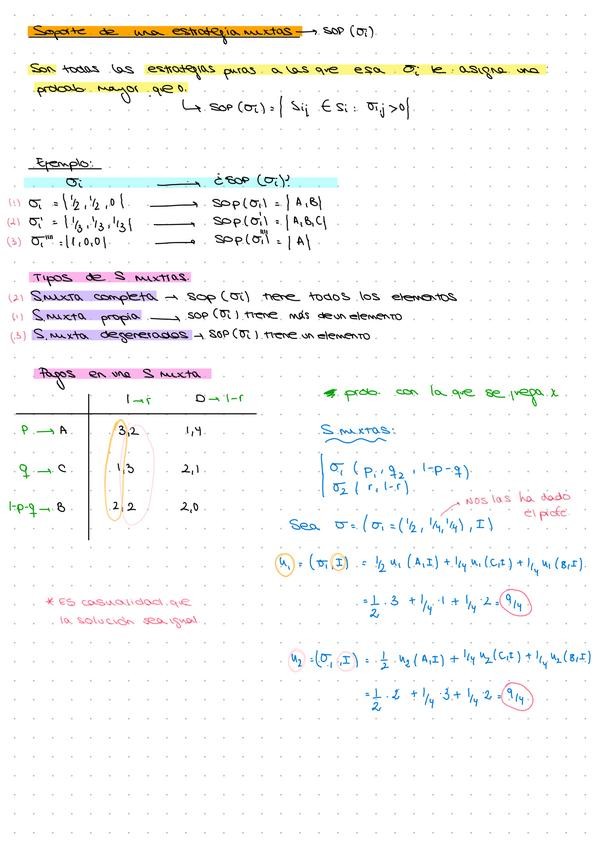 Soporte de una estrategia mixtas → SOP (σi)
Son todas las estrategias puras a las que esa σi le asigna una
probab mayor que 0.
↳ SOP (σi) = | Sij ∈ Si : σij > 0|
Ejemplo:
σi → ¿SOP (σi)?
(1) σi = |1/2, 1/2, 0| → SOP(σi) = |A,B|
(2) σi' = |1/3, 1/3, 1/3| → SOP(σi') = |A,B,C|
(3) σi'''' = |1,0,0| → SOP(σi'''') = |A|
Tipos de S mixtas.
(2) S.mixta completa → SOP (σi) tiene todos los elementos
(1) S.mixta propia → SOP (σi) tiene más de un elemento
(3) S.mixta degenerados → SOP (σi) tiene un elemento
Pagos en una S mixta
I → r D → 1-r
p → A 3,2 1,4
q → C 1,3 2,1
1-p-q → B 2,2 2,0
* Es casualidad que
la solución sea igual.
* prob. con la que se juega x
S.mixtas:
σ1 (p, q2, 1-p-q)
σ2 (r, 1-r)
Nos las ha dado
el profe
Sea σ = (σ1 = (1/2, 1/4, 1/4), I)
u1 = (σ1, I) = 1/2 u1 (A,I) + 1/4 u1 (C,I) + 1/4 u1 (B,I)
= 1/2 · 3 + 1/4 · 1 + 1/4 · 2 = 9/4
u2 = (σ1, I) = 1/2 u2 (A,I) + 1/4 u2 (C,I) + 1/4 u2 (B,I)
= 1/2 · 2 + 1/4 · 3 + 1/4 · 2 = 9/4